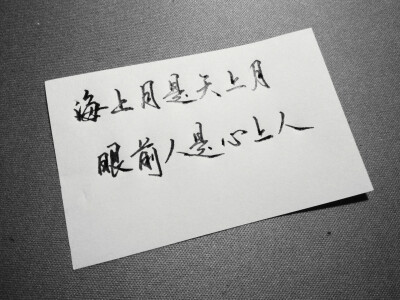 海上月是天上月
眼前人是心上人